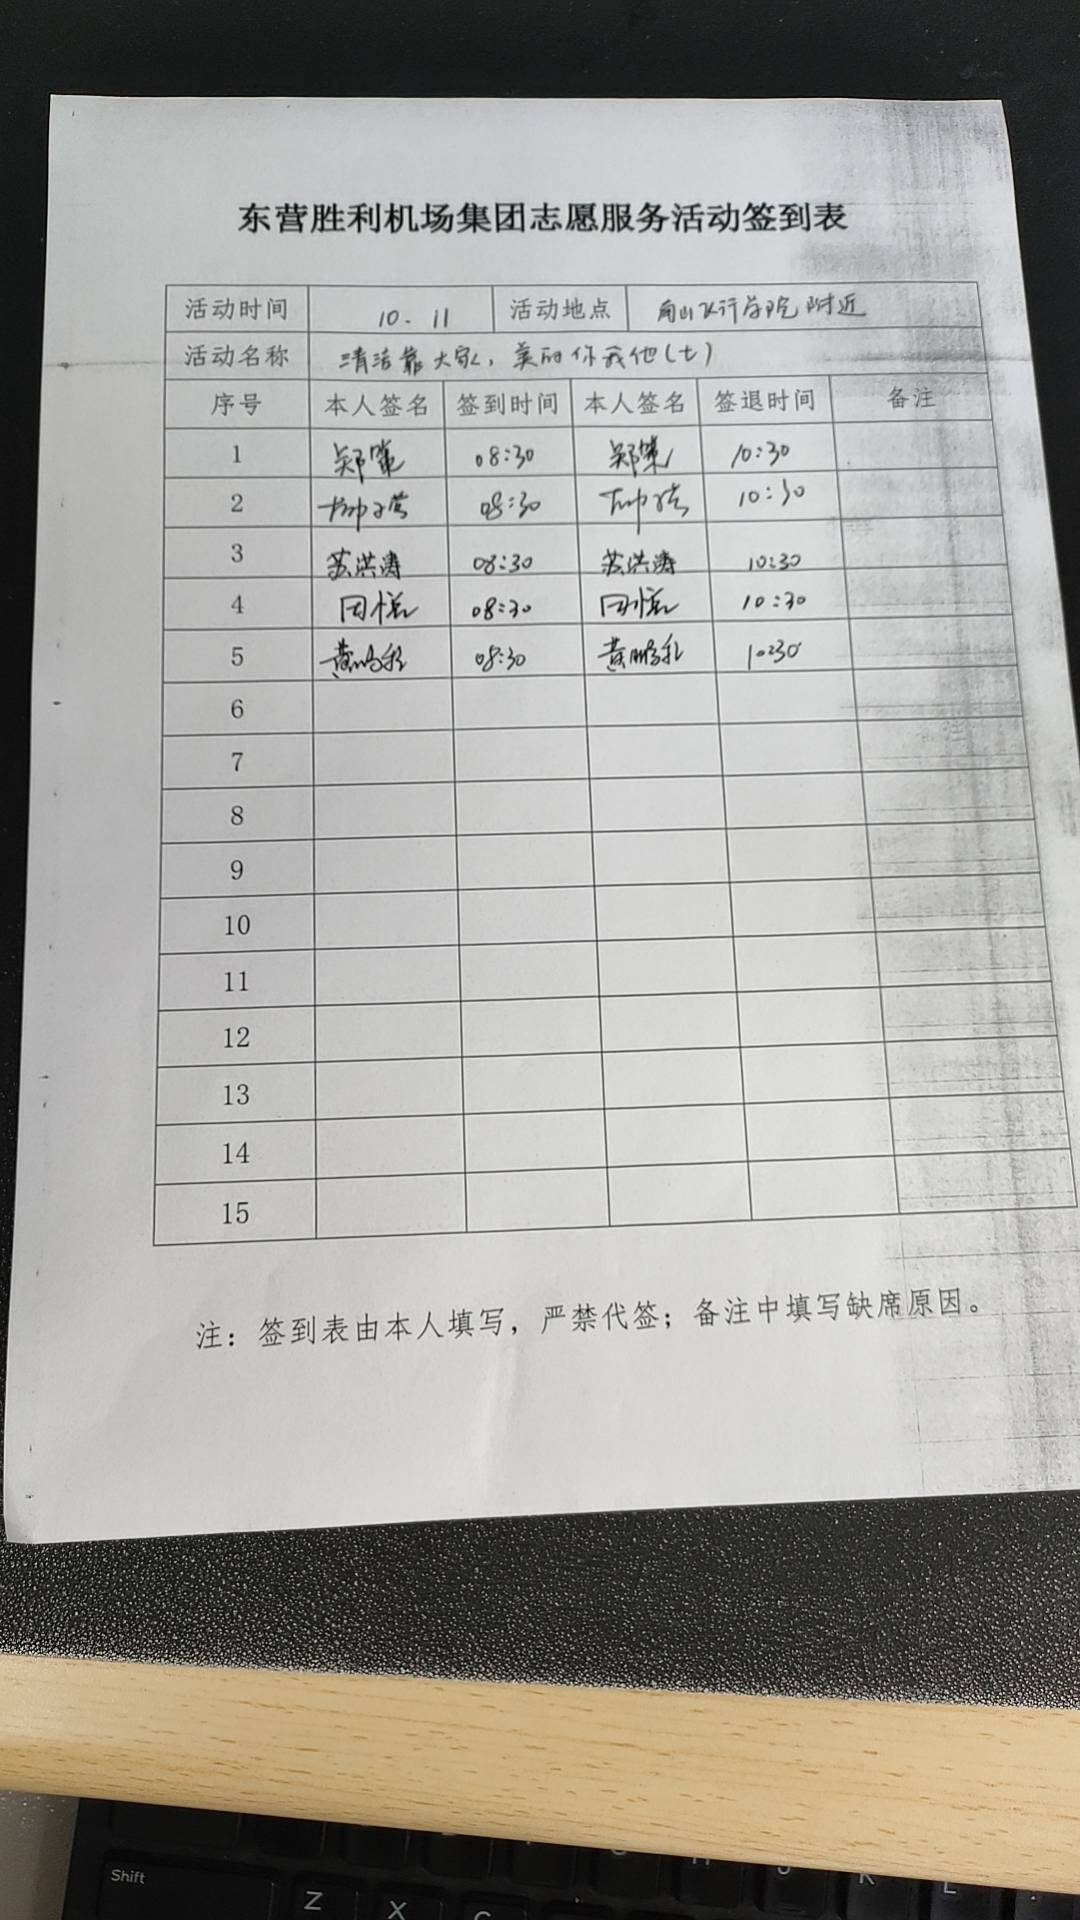 东营胜利机场集团志愿服务活动签到表
活动时间 10.11 活动地点 南山飞行学院附近
活动名称 清洁靠大家，美丽你我他(七)
序号 本人签名 签到时间 本人签名 签退时间 备注
1 08:30 10:30
2 08:30 10:30
3 苏洪涛 08:30 苏洪涛 10:30
4 08:30 10:30
5 08:30 10:30
6
7
8
9
10
11
12
13
14
15
注：签到表由本人填写，严禁代签；备注中填写缺席原因。
Shift
Z X C
H J K L